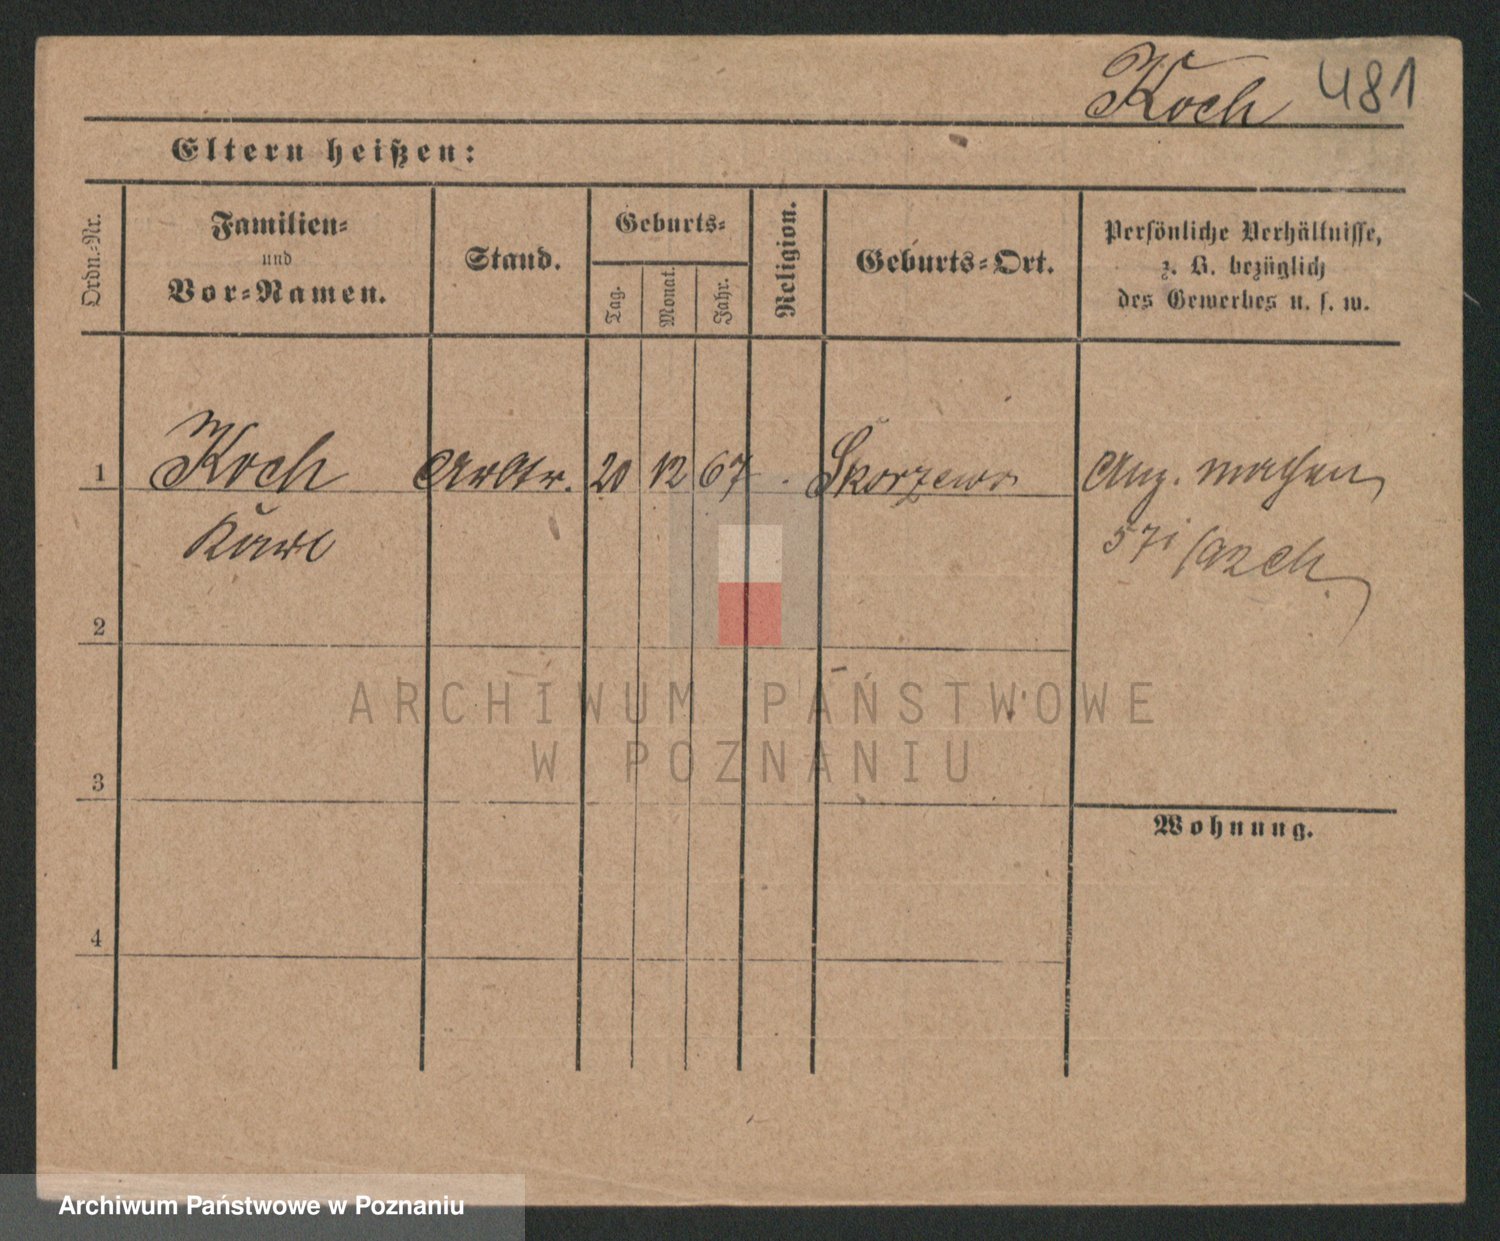 Koch 481
Eltern heißen:
Ordn.-Nr.
Familien-
und
Vor-Namen.
Stand.
Geburts-
Tag.
Monat.
Jahr.
Religion.
Geburts-Ort.
Persönliche Verhältnisse,
z. B. bezüglich
des Gewerbes u. s. w.
1 Koch 20 12 67 Skorzewo
Karl
2
3
4
Wohnung.
ARCHIWUM PAŃSTWOWE
W POZNANIU
Archiwum Państwowe w Poznaniu